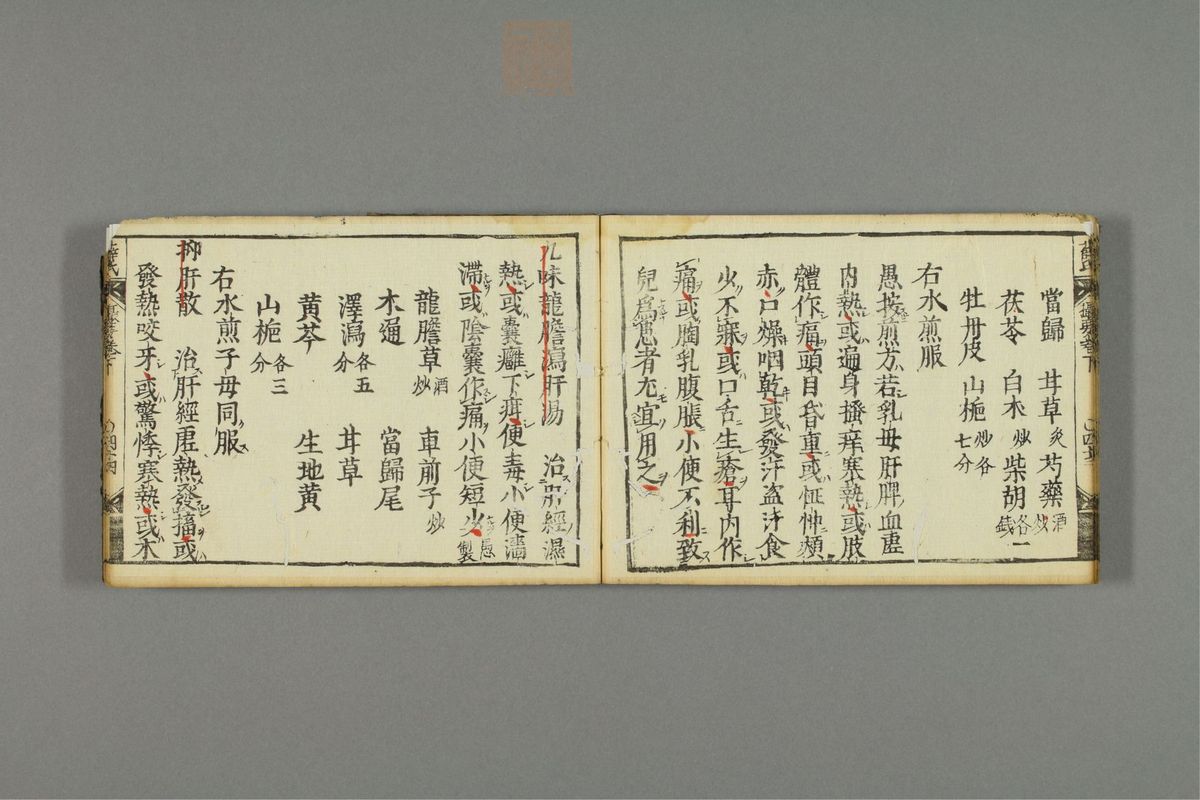 當歸　甘草炙　芍藥酒炒
茯苓　白朮炒　柴胡各一錢
牡丹皮　山梔炒各七分
右水煎服
愚按煎方若乳母肝脾血虛
内熱或遍身搔痒寒熱或肢
體作痛頭目昏重或怔忡頰
赤口燥咽乾或發汗盗汗食
少不寐或口舌生瘡耳内作
痛或胸乳腹脹小便不利致
兒爲患者尤宜用之
九味龍膽瀉肝湯　治肝經濕
熱或囊癰下疳便毒小便濇
滯或陰囊作痛小便短少愚製
龍膽草酒炒　車前子炒
木通　當歸尾
澤瀉各五分　甘草
黃芩　生地黃
山梔各三分
右水煎子母同服
抑肝散　治肝經虛熱發搐或
發熱咬牙或驚悸寒熱或木